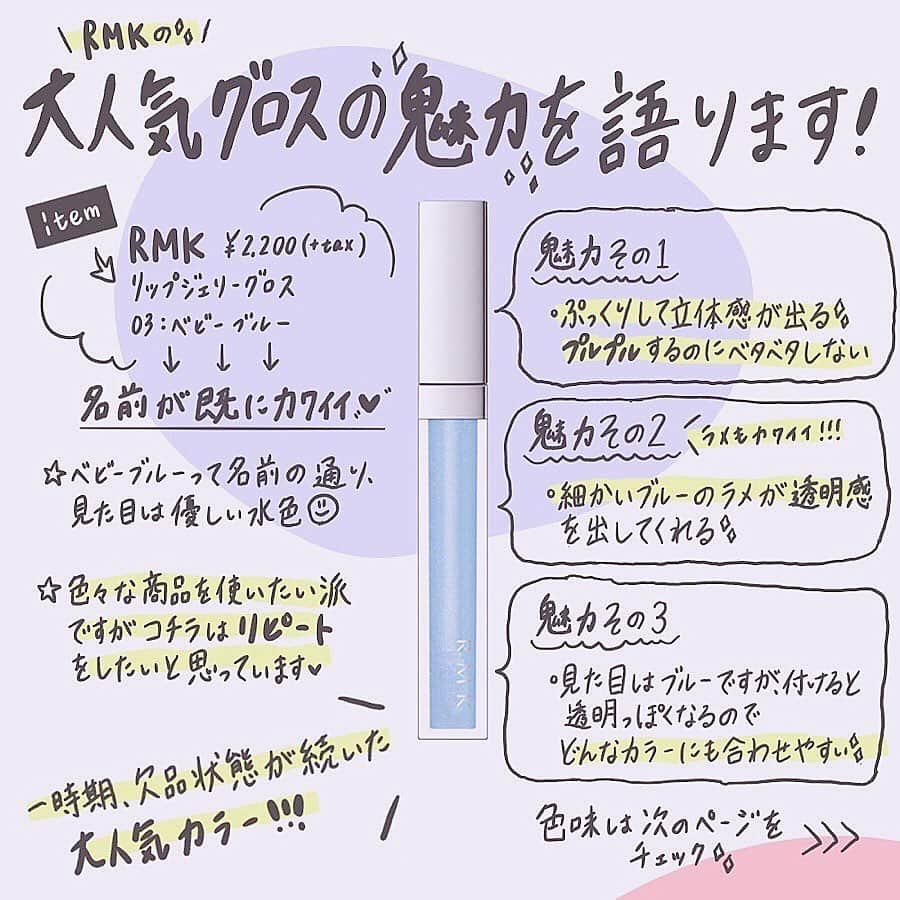 \ RMKの /
大人気グロスの魅力を語ります!
item
RMK ¥2,200(+tax)
リップジェリーグロス
03:ベビーブルー
↓ ↓ ↓
名前が既にカワイイ♥
☆ベビーブルーって名前の通り、
見た目は優しい水色☺
☆色々な商品を使いたい派
ですがコチラはリピート
をしたいと思っています♥
一時期、欠品状態が続いた
大人気カラー!!!
魅力その1
・ぷっくりして立体感が出る
プルプルするのにベタベタしない
魅力その2 ラメもカワイイ!!!
・細かいブルーのラメが透明感
を出してくれる
魅力その3
・見た目はブルーですが、付けると
透明っぽくなるので
どんなカラーにも合わせやすい
RMK
色味は次のページを
チェック >>>